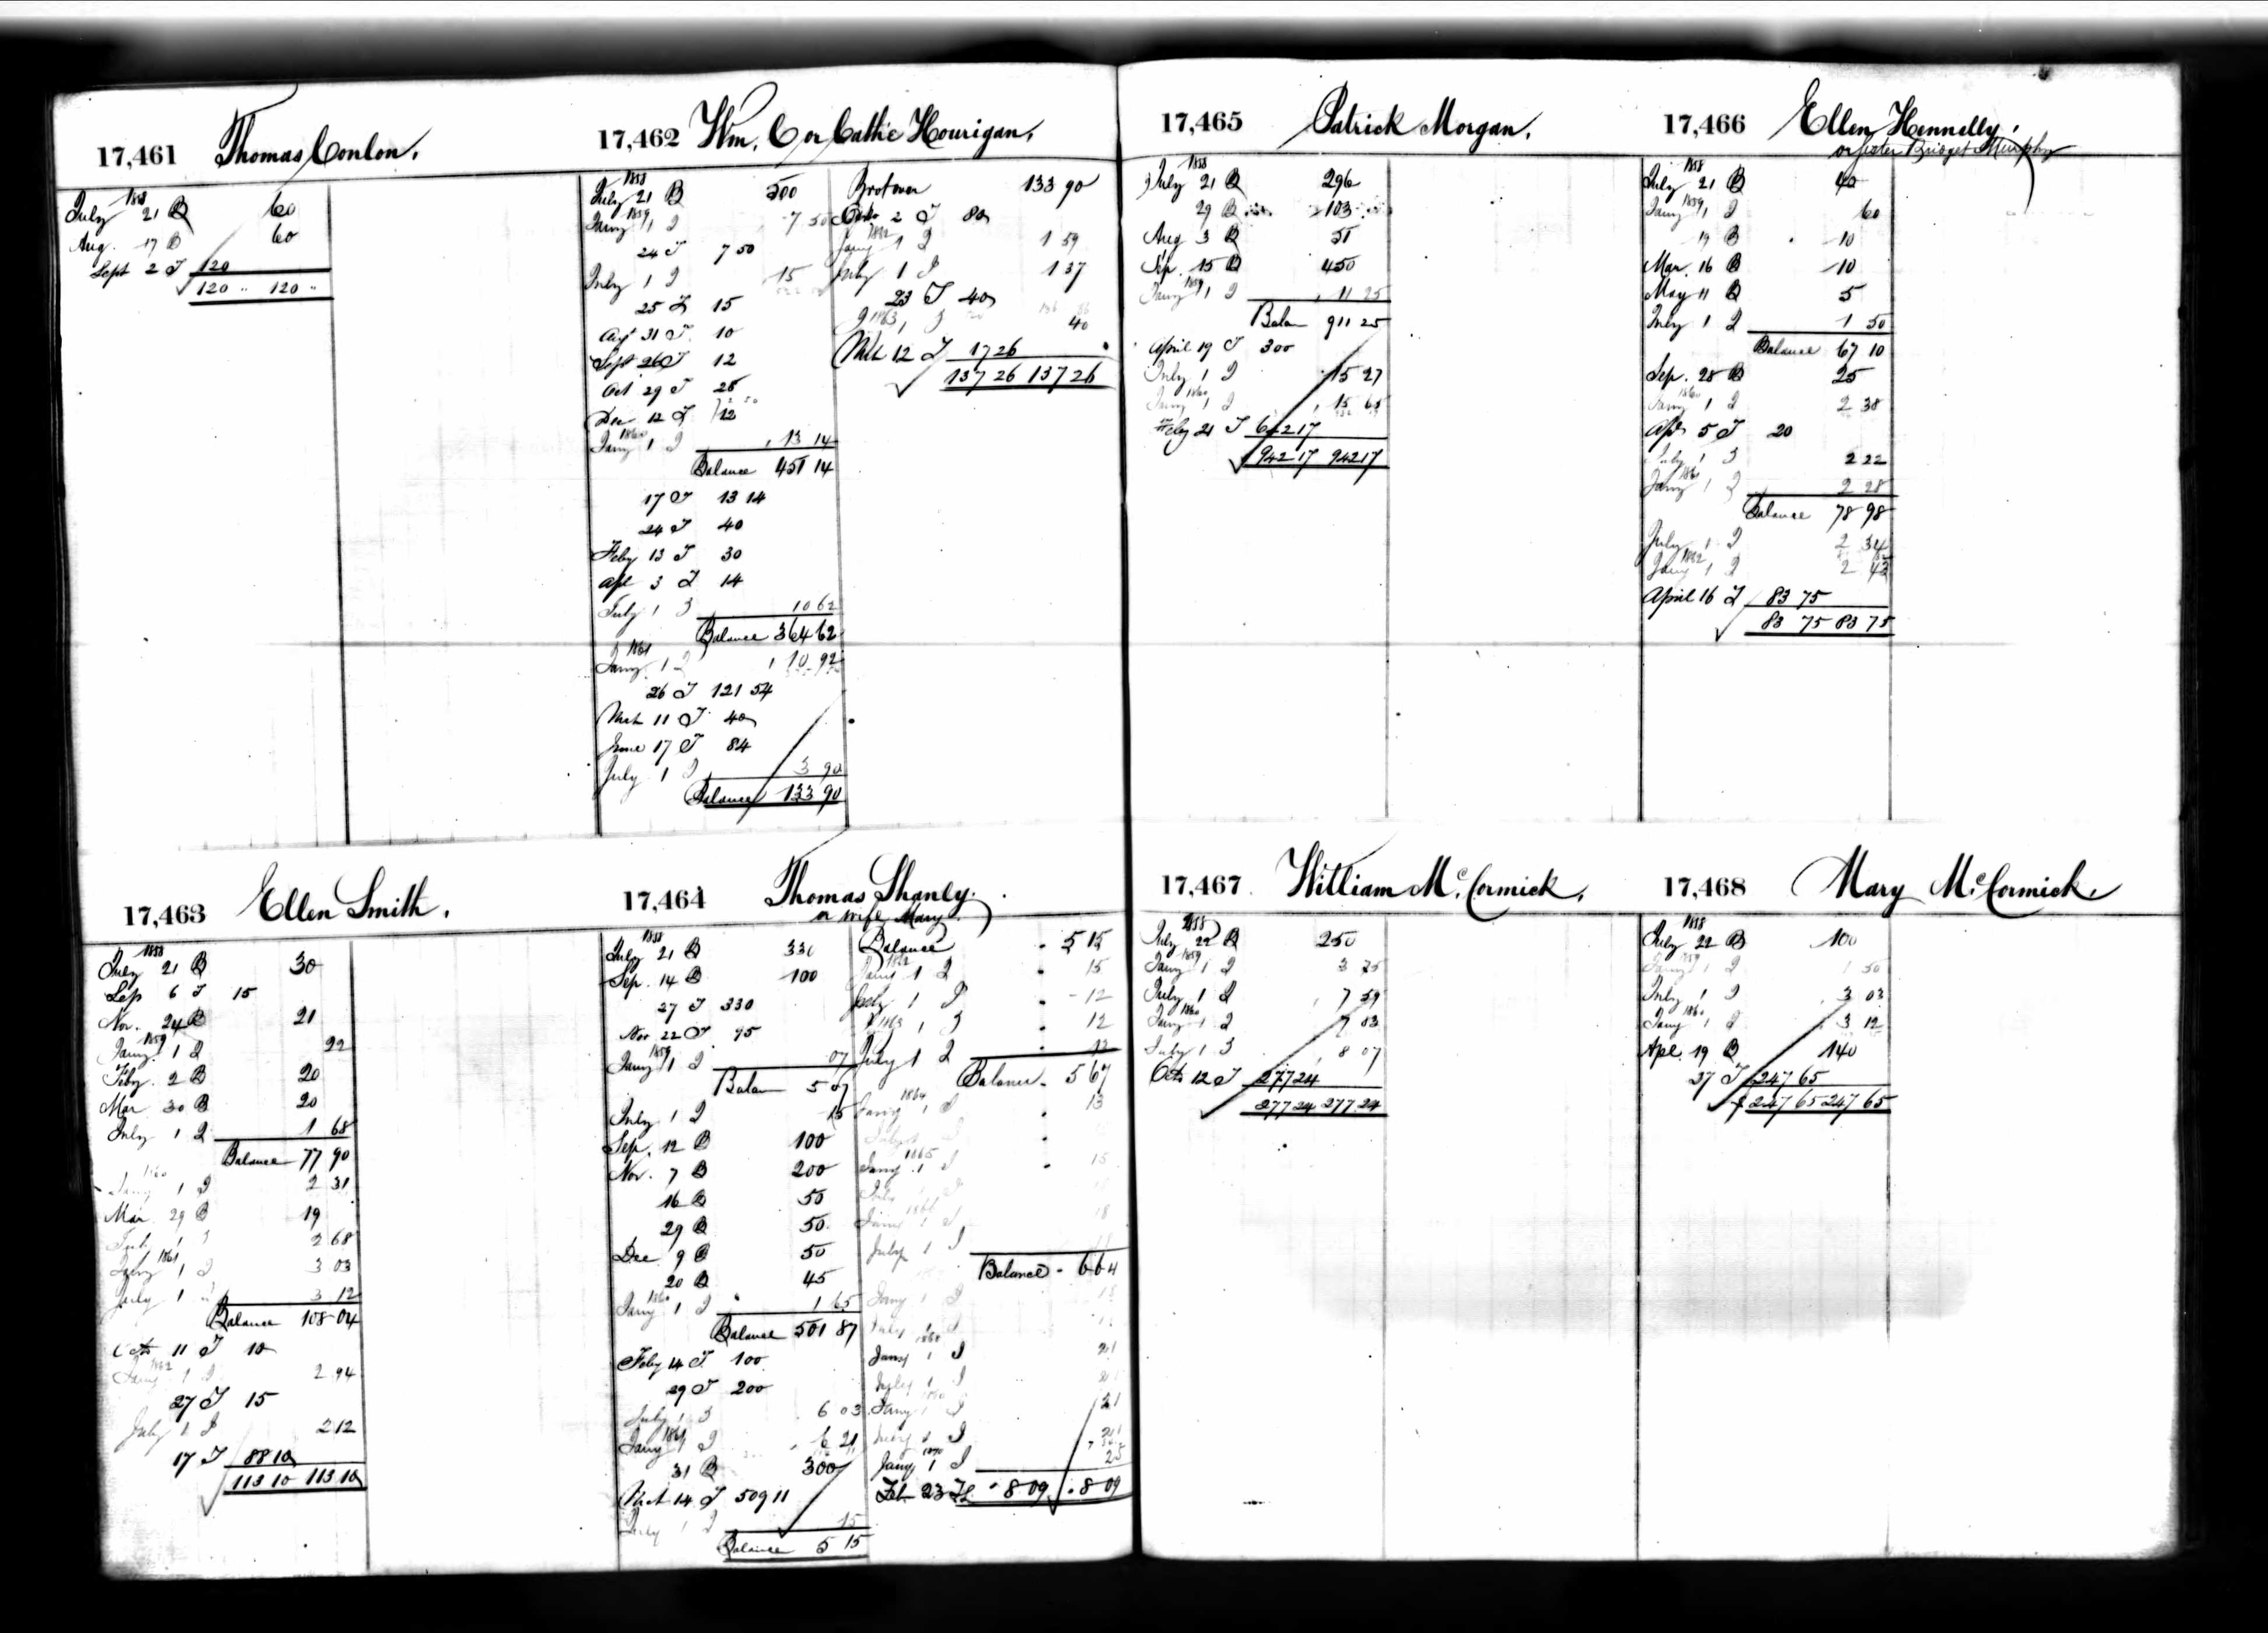 17,461 Thomas Conlon.
1858
July 21 B 60
Aug. 17 B 60
Sept 2 T 120
120 " 120 "
17,462 Wm. C or Cathe Hourigan,
1858
July 21 B 500
1859
Jany 1 I 7 50
24 T 7 50
July 1 I 15
25 T 15
Aug 31 T 10
Sept 26 T 12
Oct 29 T 25
Dec 12 T 12
1860
Jany 1 I 13 14
Balance 451 14
17 T 13 14
24 T 40
Feby 13 T 30
Apl 3 T 14
July 1 I 10 62
Balance 364 62
1861
Jany 1 I 10 92
26 T 121 54
Mch 11 T 40
June 17 T 84
July 1 I 3 90
Balance 133 90
Brot over 133 90
2 T 80
1862
Jany 1 I 1 59
July 1 I 1 37
23 T 40
1863, 1 I 40
Mch 12 T 17 26
137 26 137 26
17,463 Ellen Smith.
1858
July 21 B 30
Sep 6 T 15
Nov. 24 B 21
1859
Jany 1 I 22
Feby. 2 B 20
Mar 30 B 20
July 1 I 1 68
Balance 77 90
1860
Jany 1 I 2 31
Mar 29 B 19
July 1 I 2 68
1861
Jany 1 I 3 03
July 1 I 3 12
Balance 108 04
Octo 11 T 10
1862
Jany 1 I 2 94
27 T 15
July 1 I 2 12
17 T 88 10
113 10 113 10
17,464 Thomas Shanly.
or wife Mary
1858
July 21 B 330
Sep. 14 B 100
27 T 330
Nov 22 T 95
1859
Jany 1 I 07
Balan 5 07
July 1 I 15
Sep. 12 B 100
Nov. 7 B 200
16 B 50
29 B 50
Dec 9 B 50
20 B 45
1860
Jany 1 I 1 65
Balance 501 87
Feby 14 T 100
29 T 200
July 1 I 6 03
1861
Jany 1 I 6 21
31 B 300
Mch 14 T 509 11
July 1 I 15
Balance 5 15
Balance 5 15
1862
Jany 1 I 15
July 1 I 12
1863, 1 I 12
July 1 I 13
Balance 5 67
1864
Jany 1 I 13
July 1 I
1865
Jany 1 I 15
July 1 I
1866
Jany 1 I 18
July 1 I
Balance 6 64
Jany 1 I 18
July 1 I
1868
Jany 1 I 21
July 1 I 21
Jany 1 I 21
July 1 I 21
1870
Jany 1 I 25
Feb 23 T 8 09 8 09
17,465 Patrick Morgan.
1858
July 21 B 296
29 B 103
Aug 3 B 51
Sep. 15 B 450
1859
Jany 1 I 11 25
Balan 911 25
April 19 T 300
July 1 I 15 27
1860
Jany 1 I 15 65
Feby 21 T 642 17
942 17 942 17
17,466 Ellen Hennelly,
or sister Bridget Murphy
1858
July 21 B 40
1859
Jany 1 I 60
19 B 10
Mar. 16 B 10
May 11 B 5
July 1 I 1 50
Balance 67 10
Sep. 28 B 25
1860
Jany 1 I 2 38
Apr 5 T 20
July 1 I 2 22
1861
Jany 1 I 2 28
Balance 78 98
July 1 I 2 34
1862
Jany 1 I 2 43
April 16 T 83 75
83 75 83 75
17,467 William McCormick.
1858
July 22 B 250
1859
Jany 1 I 3 75
July 1 I 7 59
1860
Jany 1 I 7 83
July 1 I 8 07
Octo 12 T 277 24
277 24 277 24
17,468 Mary McCormick.
1858
July 22 B 100
1859
Jany 1 I 1 50
July 1 I 3 03
1860
Jany 1 I 3 12
Apl. 19 B 140
27 T 247 65
247 65 247 65